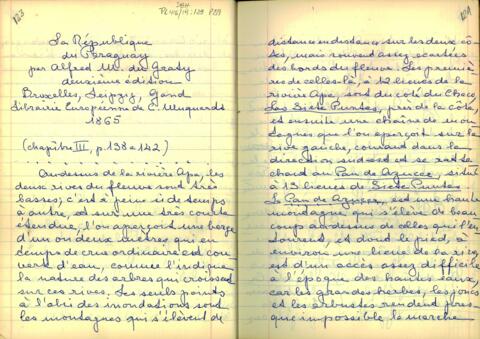 123
La République
du Paraguay
par Alfred M. du Graty
deuxième édition
Bruxelles, Leipzig, Gand
Librairie Européenne de C. Muquardt
1865
(chapitre III, p. 138 a 142)
Au dessus de la rivière Apa, les
deux rives du fleuve sont très
basses; c'est à peine si de temps
à autre, et sur une très courte
étendue, l'on aperçoit une berge
d'un ou deux mètres qui en
temps de crue ordinaire est cou
verte d'eau, comme l'indique
la nature des arbres qui croissent
sur ces rives. Les seuls points
à l'abri des inondations sont
les montagnes qui s'élèvent de
124
distance en distance, sur les deux cô-
tés, mais souvent assez écartées
des bords du fleuve. Les premiè
res de celles-là, à 12 lieues de la
rivière Apa, sont du côté du Chaco,
Las Siete Puntas, près de la côte,
et ensuite une chaîne de mon
tagnes que l'on aperçoit sur la
rive gauche, courant dans la
direction sud est et se ratta
chant au Pan de Azucar, situé
à 13 lieues de Siete Puntas
Le Pan de Azucar, est une haute
montagne qui s'élève de beau
coup au dessus de celles qui l'en
tourent, et dont le pied, à
environ une lieue de la rive
est d'un accès assez difficile
à l'époque des hautes eaux,
car les grandes herbes, les joncs
et les arbustes rendent pres
que impossible la marche